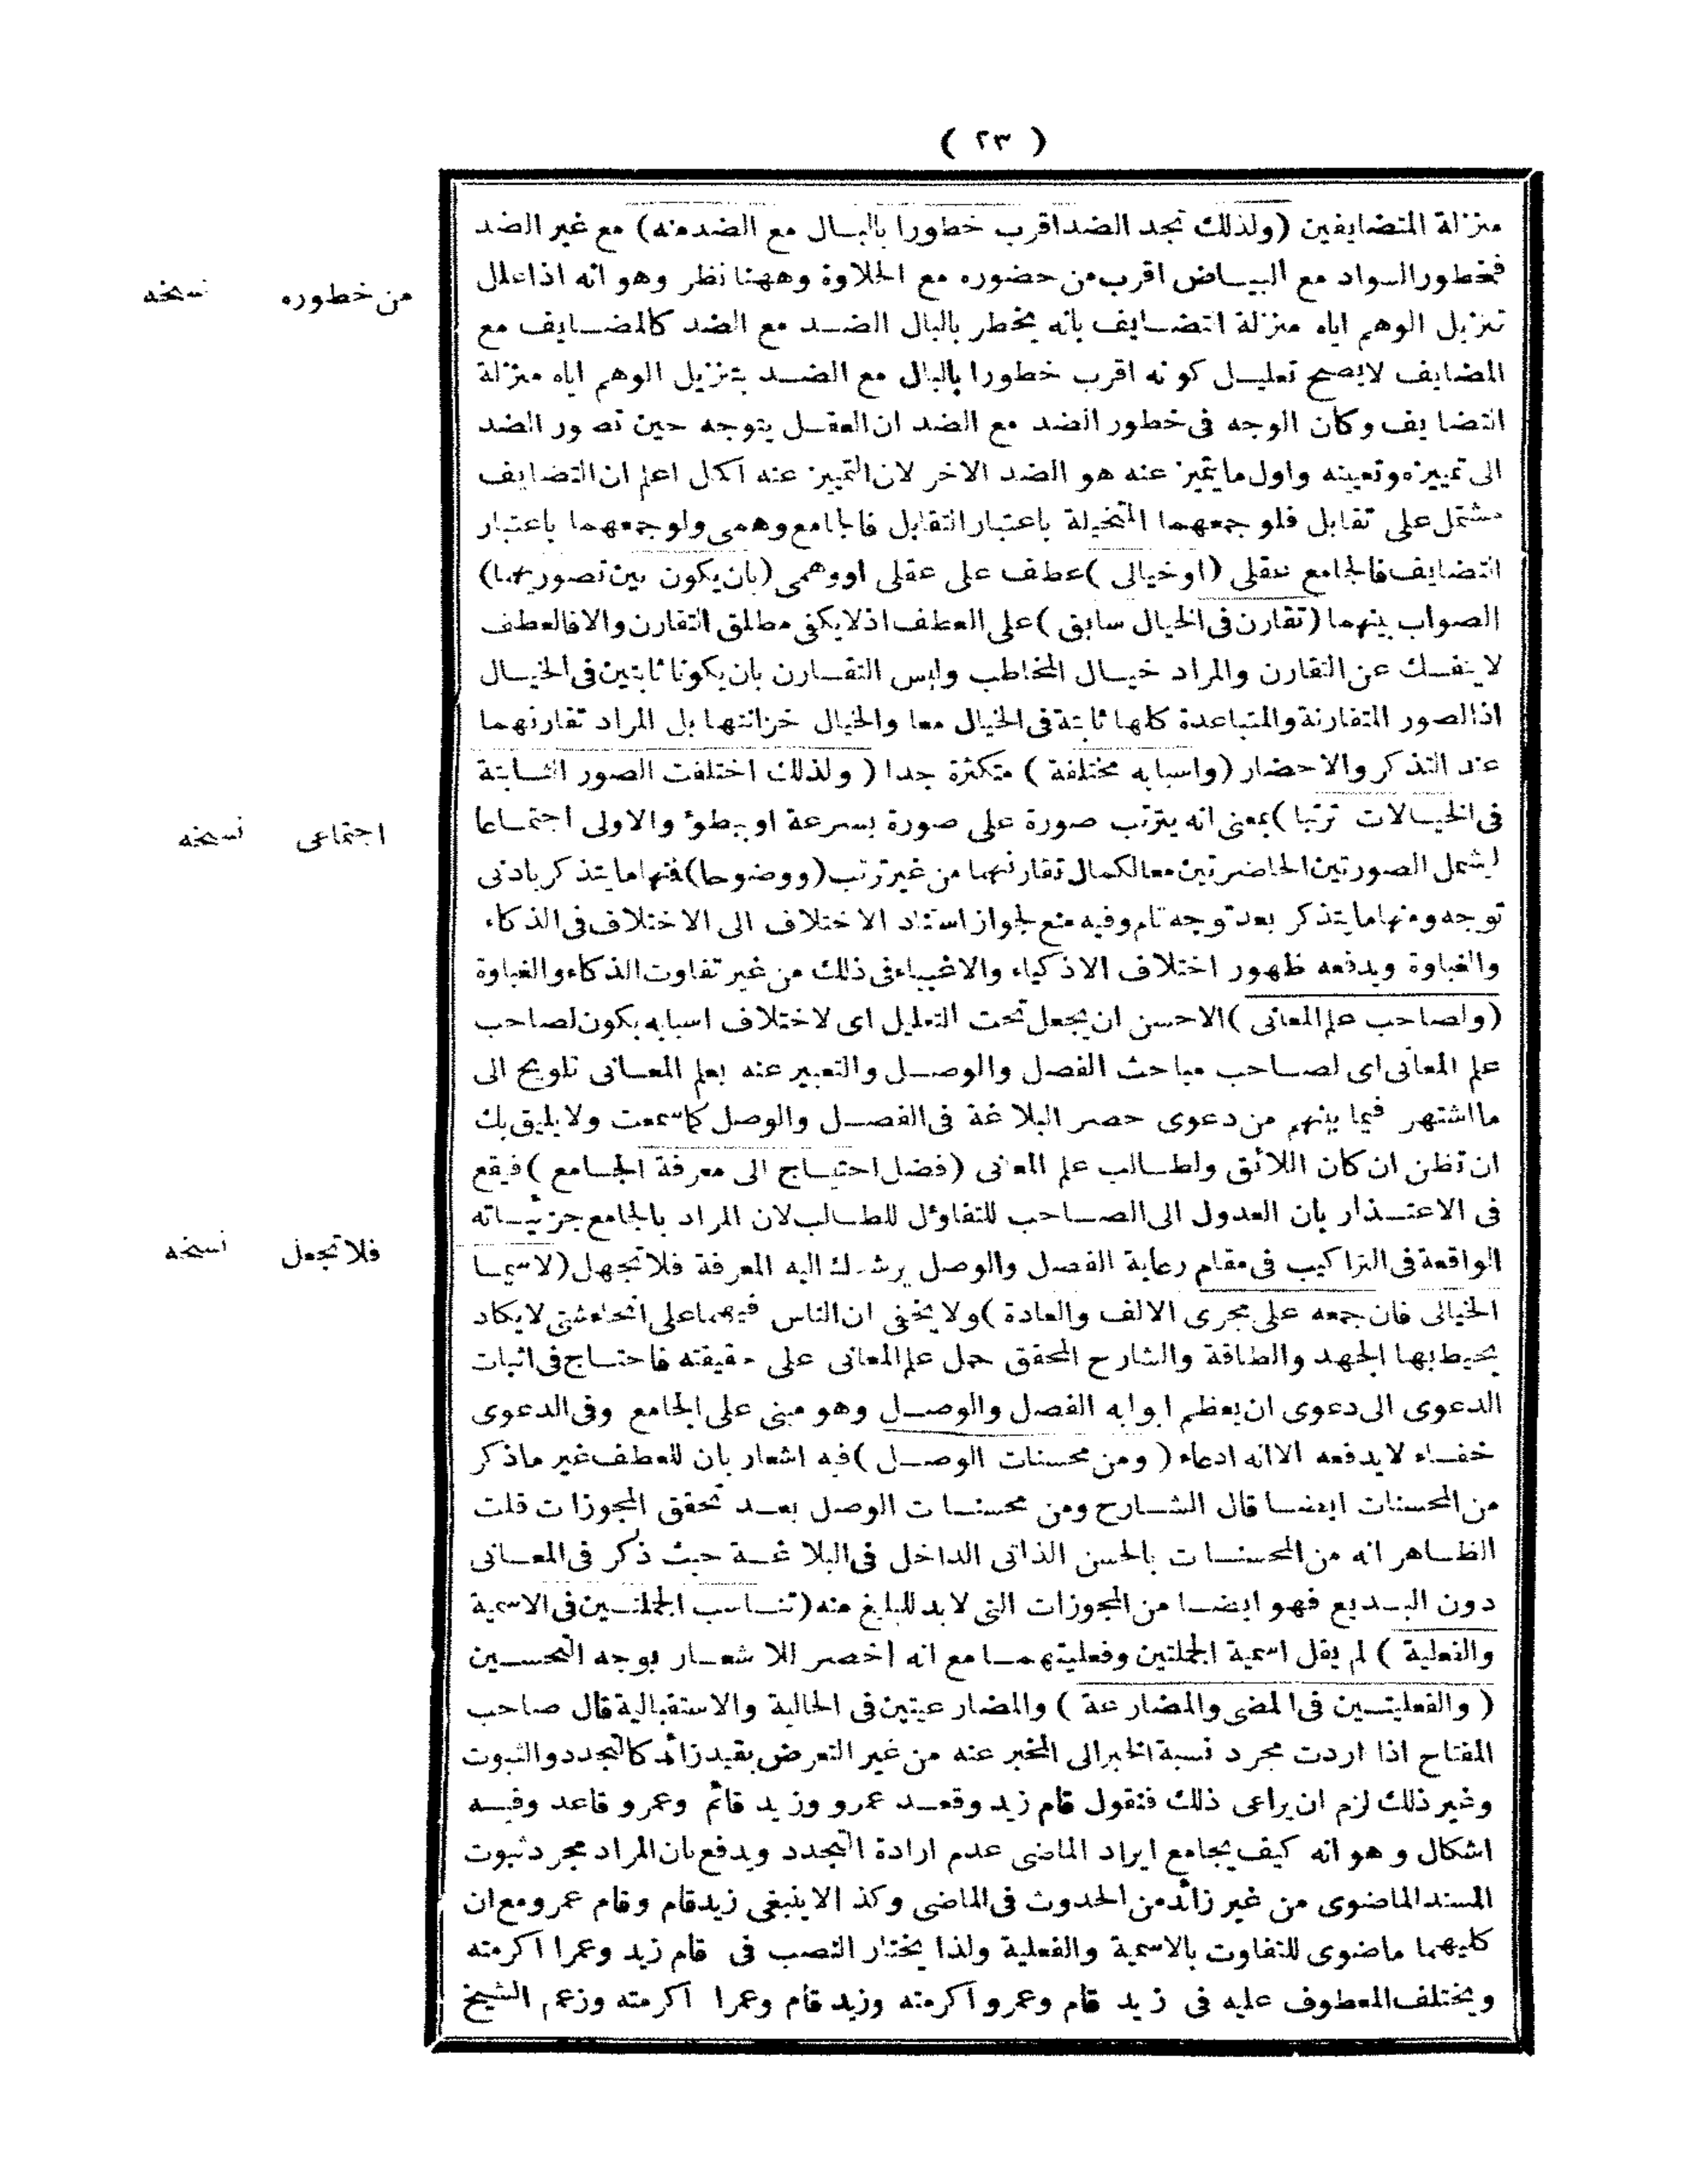 ( ٢٣ )
منزلة المتضايفين (ولذلك تجد الضد اقرب خطورا بالبال مع الضد منه) مع غير الضد
فخطور السواد مع البياض اقرب من حضوره مع الحلاوة وههنا نظر وهو انه اذا علل
من خطوره نسخه
تنزيل الوهم اياه منزلة التضايف بانه يخطر بالبال الضد مع الضد كالمضايف مع
المضايف لايصح تعليل كونه اقرب خطورا بالبال مع الضد بتنزيل الوهم اياه منزلة
التضايف وكان الوجه فى خطور الضد مع الضد ان العقل يتوجه حين تصور الضد
الى تمييزه وتعيينه واول ما يتميز عنه هو الضد الاخر لان التمييز عنه اكمل اعلم ان التضايف
مشتمل على تقابل فلو جمعهما المتخيلة باعتبار التقابل فالجامع وهمى ولو جمعهما باعتبار
التضايف فالجامع عقلى (اوخيالى) عطف على عقلى او وهمى (بان يكون بين تصوريهما)
الصواب بينهما (تقارن فى الخيال سابق) على العطف اذ لا يكفى مطلق التقارن والا فالعطف
لا ينفك عن التقارن والمراد خيال المخاطب وليس التقارن بان يكونا ثابتين فى الخيال
اذ الصور المتقارنة والمتباعدة كلها ثابتة فى الخيال معا والخيال خزانتها بل المراد تقارنهما
عند التذكر والاحضار (واسبابه مختلفة) متكثرة جدا (ولذلك اختلفت الصور الثابتة
فى الخيالات ترتبا) بمعنى انه يترتب صورة على صورة بسرعة او ببطؤ والاولى اجتماعا
اجتماعى نسخه
ليشمل الصورتين الحاضرتين معا لكمال تقارنهما من غير ترتب (ووضوحا) فمنها ما يتذكر بادنى
توجه ومنها ما يتذكر بعد توجه تام وفيه منع لجواز استناد الاختلاف الى الاختلاف فى الذكاء
والغباوة ويدفعه ظهور اختلاف الاذكياء والاغبياء فى ذلك من غير تفاوت الذكاء والغباوة
(ولصاحب علم المعانى) الاحسن ان يجعل تحت التعليل اى لاختلاف اسبابه يكون لصاحب
علم المعانى اى لصاحب مباحث الفصل والوصل والتعبير عنه بعلم المعانى تلويح الى
ما اشتهر فيما بينهم من دعوى حصر البلاغة فى الفصل والوصل كما سمعت ولا يليق بك
ان تظن ان كان اللائق ولطالب علم المعانى (فضل احتياج الى معرفة الجامع) فيقع
فى الاعتذار بان العدول الى الصاحب للتفاؤل للطالب لان المراد بالجامع جزئياته
الواقعة فى التراكيب فى مقام رعاية الفصل والوصل يرشدك اليه المعرفة فلا تجهل (لاسيما
فلا تجعل نسخه
الخيالى فان جمعه على مجرى الالف والعادة) ولا يخفى ان الناس فيهما على انحاء شتى لا يكاد
يحيط بها الجهد والطاقة والشارح المحقق حمل علم المعانى على حقيقته فاحتاج فى اثبات
الدعوى الى دعوى ان يعظم ابوابه الفصل والوصل وهو مبنى على الجامع وفى الدعوى
خفاء لا يدفعه الا انه ادعاء (ومن محسنات الوصل) فيه اشعار بان للعطف غير ما ذكر
من المحسنات ايضا قال الشارح ومن محسنات الوصل بعد تحقق المجوزات قلت
الظاهر انه من المحسنات بالحسن الذاتى الداخل فى البلاغة حيث ذكر فى المعانى
دون البديع فهو ايضا من المجوزات التى لابد للبليغ منه (تناسب الجملتين فى الاسمية
والفعلية) لم يقل اسمية الجملتين وفعليتهما مع انه اخصر للاشعار بوجه التحسين
(والفعليتين فى المضى والمضارعة) والمضارعيتين فى الحالية والاستقبالية قال صاحب
المفتاح اذا اردت مجرد نسبة الخبر الى المخبر عنه من غير التعرض بقيد زائد كالتجدد والثبوت
وغير ذلك لزم ان يراعى ذلك فتقول قام زيد وقعد عمرو وزيد قائم وعمرو قاعد وفيه
اشكال وهو انه كيف يجامع ايراد الماضى عدم ارادة التجدد ويدفع بان المراد مجرد ثبوت
المسند الماضوى من غير زائد من الحدوث فى الماضى وكذا لا ينبغى زيد قام وقام عمرو مع ان
كليهما ماضوى للتفاوت بالاسمية والفعلية ولذا يختار النصب فى قام زيد وعمرا اكرمته
ويختلف المعطوف عليه فى زيد قام وعمرو اكرمته وزيد قام وعمرا اكرمته وزعم الشيخ